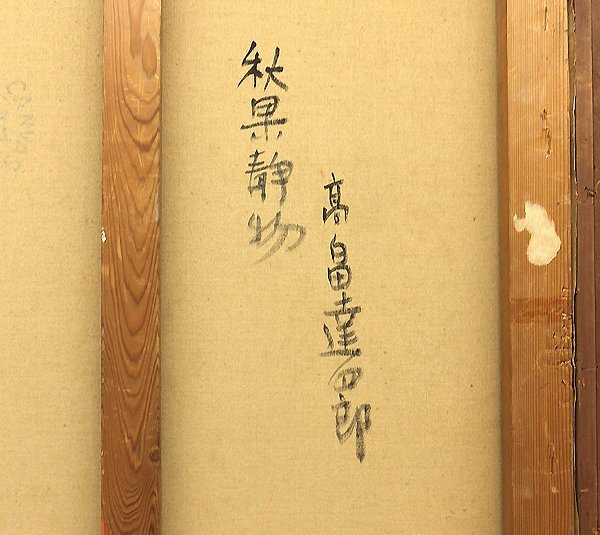 秋果静物
高畠達四郎